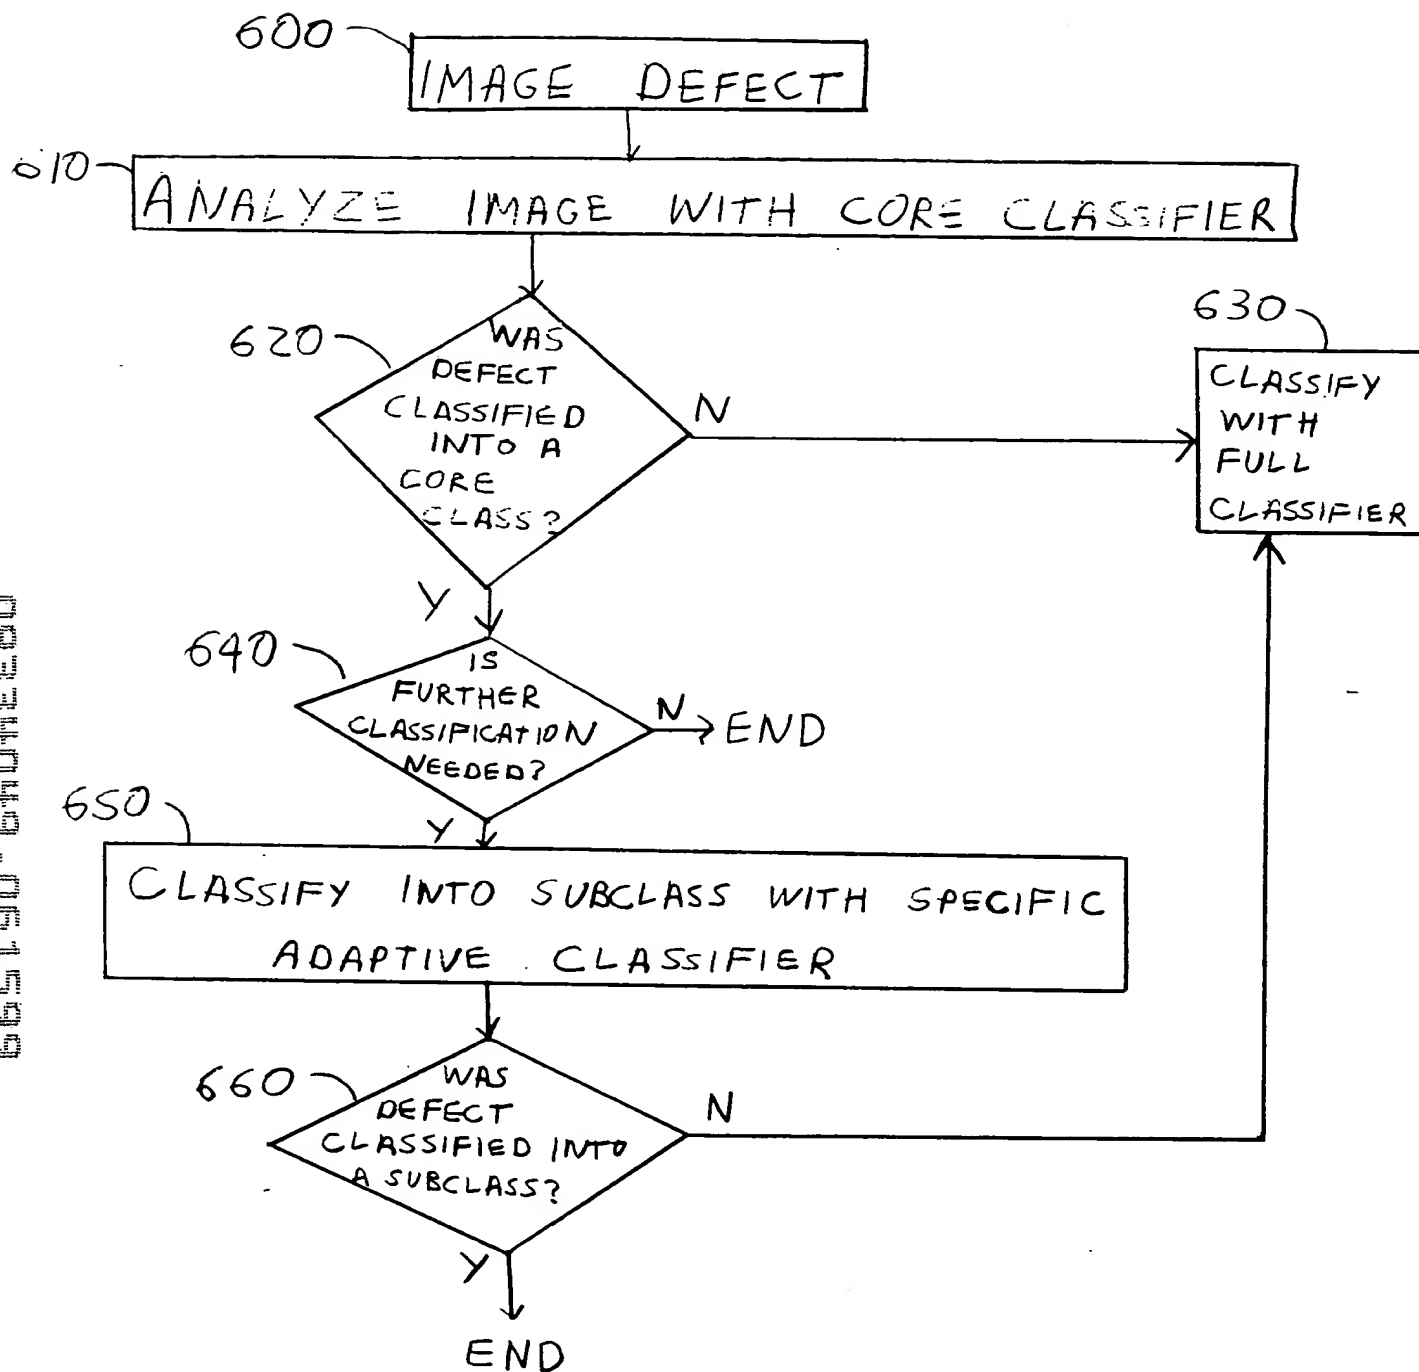 600
IMAGE DEFECT
610
ANALYZE IMAGE WITH CORE CLASSIFIER
620
WAS
DEFECT
CLASSIFIED
INTO A
CORE
CLASS?
N
630
CLASSIFY
WITH
FULL
CLASSIFIER
Y
640
IS
FURTHER
CLASSIFICATION
NEEDED?
N
END
Y
650
CLASSIFY INTO SUBCLASS WITH SPECIFIC
ADAPTIVE CLASSIFIER
660
WAS
DEFECT
CLASSIFIED INTO
A SUBCLASS?
N
Y
END